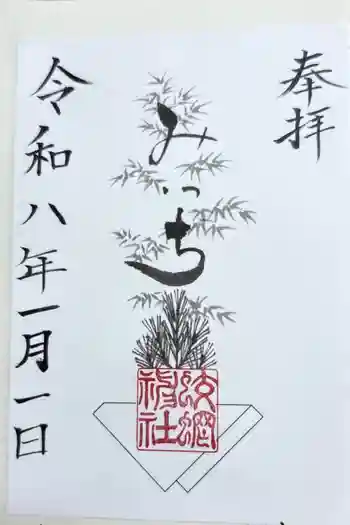 奉拝
みつち
蛟蝄神社
令和八年一月一日